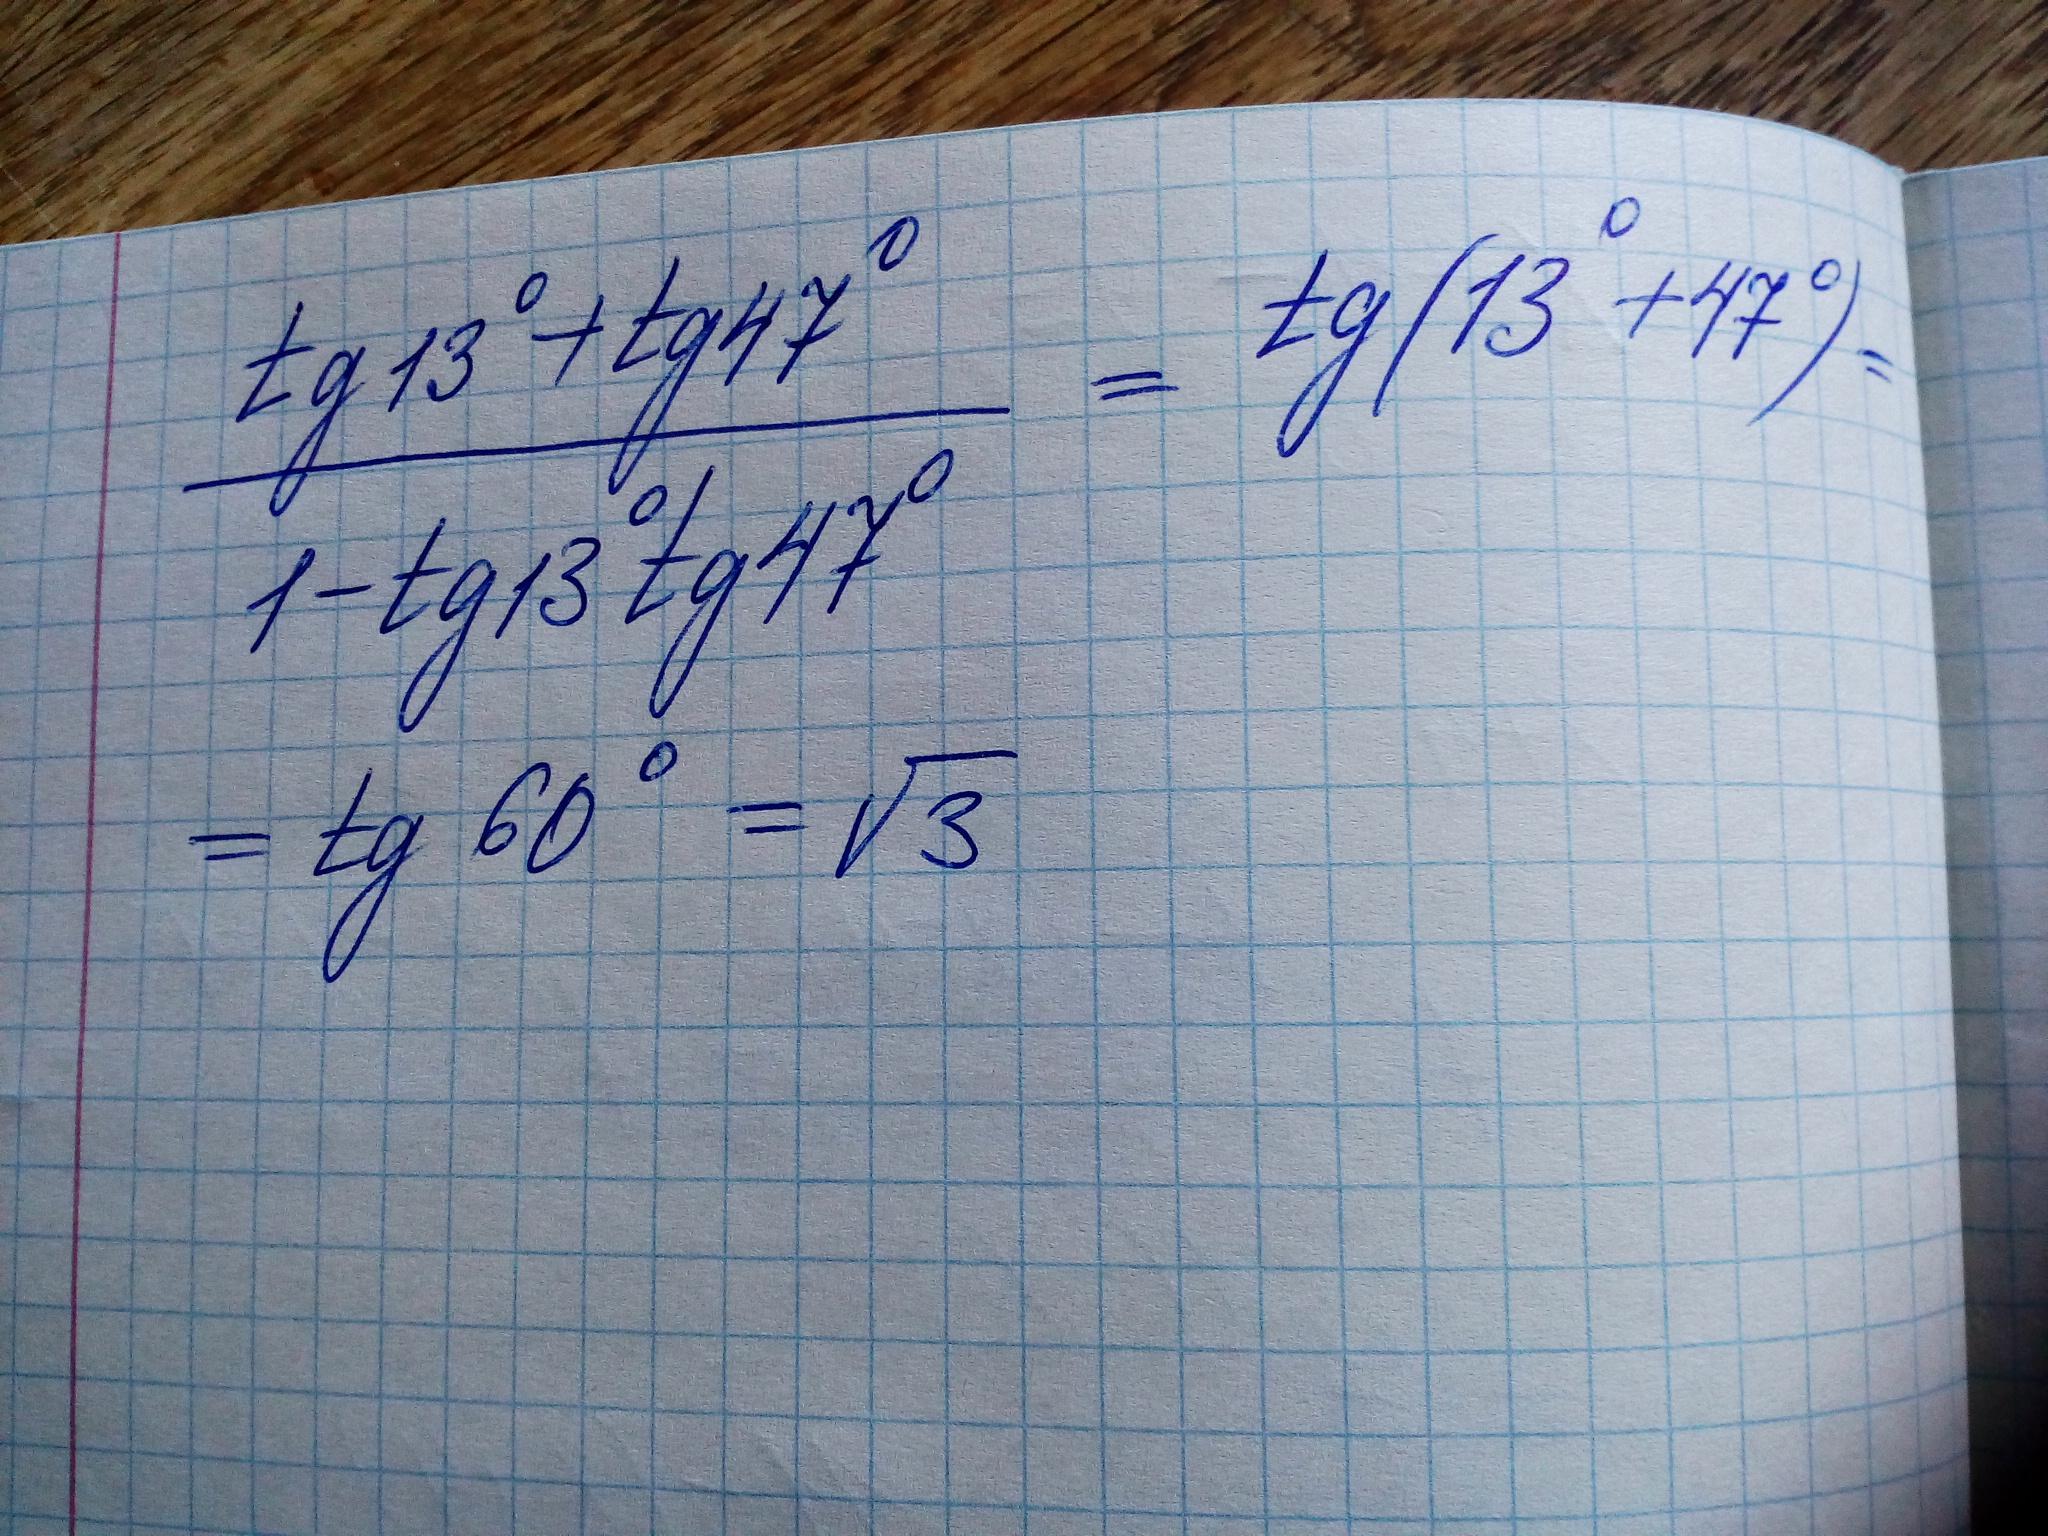 (tg13°+tg47°)/(1-tg13°tg47°) = tg(13°+47°)=
= tg 60° = √3